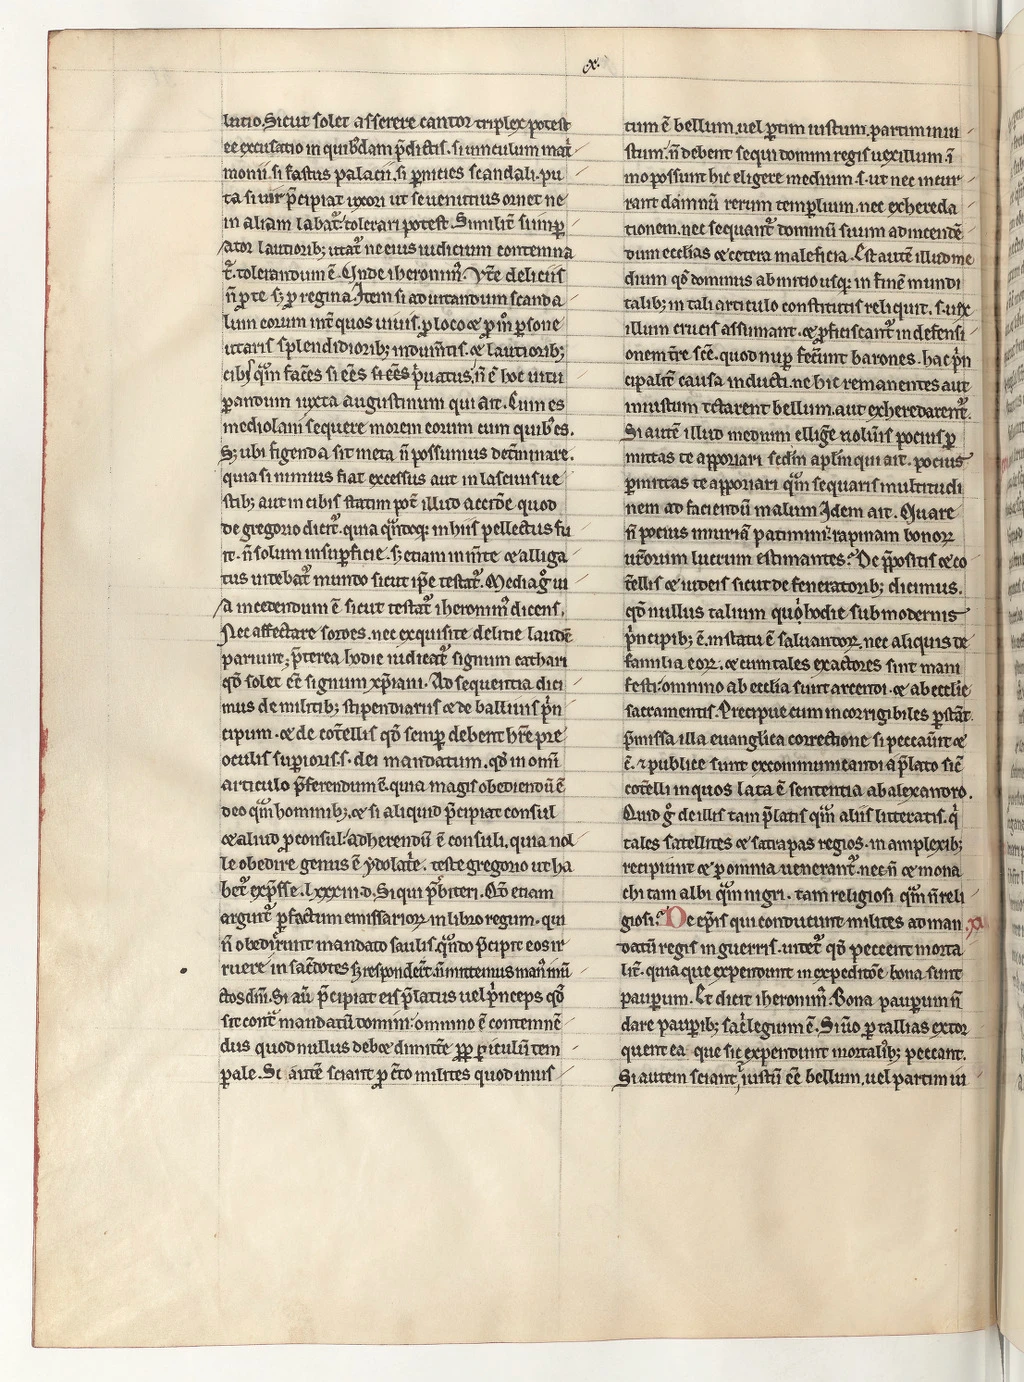 x.
lutio. Sicut solet asserere cantor triplex potest
eē excusatio in quibꝰdam p̄dictis. si uinculum mat̄
monii. si fastus palacii. si ꝑnicies scandali. pu
ta si uir p̄cipiat uxori ut se uenustius ornet ne
in aliam labatᷣ. tolerari potest. Similit̄ si impꝑ
ator lautiorib; utatᷣ ne eius iudicium contemna
tᷣ. tolerandum ē. Unde iheronimꝰ. Vte deliciis
n̄ ꝑ te sꝫ ꝑ regina. Item si ad uitandum scanda
lum eorum int̄ quos uiuis. ꝓ loco ⁊ ꝑ
utaris splendidiorib; indum̄tis. ⁊ lautiorib;
cibꝭ qᷓm faceēs si eēs si eēs p̄uatus. n̄ ē hoc uitu
ꝑandum iuxta augustinum qui ait. Cum es
mediolani sequere morem eorum cum quibꝰ es.
Sꝫ ubi figenda sit meta n̄ possumus det̄minare.
quia si nimius fiat excessus aut in lasciuis ue
stib; aut in cibis statim pot̄ illud accid̄e quod
de gregorio dicitᷣ. quia qᷓntocꝗ: in hiis pellectus fu
it. n̄ solum in suꝑficie. sꝫ etiam in m̄te ⁊ alliga
tus uidebatᷣ mundo sicut ip̄e testatᷣ. Media gͦ ui
a incedendum ē sicut testatᷣ iheronimꝰ dicens.
Nec affectate sordes. nec exquisite delitie laudē
pariunt. p̄terea hodie iudicatᷣ signum cathari
qͦd solet eē signum xp̄iani. Ad sequentia dici
mus de militib; stipendiariis ⁊ de balliuis p̄n
cipum. ⁊ de cot̄ellis qͦd semꝑ debent hr̄e pre
oculis suꝑioris. s. dei mandatum. qͦd in om̄i
articulo p̄ferendum ē. quia magis obediendū ē
deo qᷓm hominib;. ⁊ si aliquid p̄cipiat consul
⁊ aliud ꝓconsul. adherendū ē consuli. quia nol
le obedire genus ē ydolatͥe. teste gregorio ut ha
betᷣ exp̄sse. lxxxiii. d. Si qui p̄biteri. Qͦd etiam
arguitᷣ ꝑ factum emissarioꝝ in libro regum. qui
n̄ obedierunt mandato saulis. qᷓndo p̄cipit eos ir
ruere in sac̄dotes sꝫ respondēt. n̄ mittemus manꝰ in xp̄
ctos dn̄i. Si aū p̄cipiat eis p̄latus uel pͥnceps qͦd
sit contᷓ mandatū domini. omnino ē contemnē
dus quod nullus debet dimitt̄e ꝓpꝑ ꝑiculū tem
pale. Si autē sciant ꝑ c̄to milites quod inius
tum ē bellum. uel ꝑtim iustum. partim iniu
stum. n̄ debent sequi domini regis uexillum. ī
mo possunt hic eligere medium. s. ut nec incur
rant dāmnū rerum temꝑlium. nec exhereda
tionem. nec sequantᷣ dominū suum ad incendē
dum ecclias ⁊ cetera maleficia. Est autē illud me
dium qͦd dominus ab initio usqꝫ in finē mundi
talib; in tali articulo constitutis reliquit. s. uex
illum crucis assumant. ⁊ ꝓficiscantᷣ in defensi
onem t̄re sc̄e. quod nuꝑ fec̄unt barones. hac p̄n
cipalit̄ causa inducti. ne hic remanentes aut
iniustum tractarent bellum. aut exheredarentᷣ.
Si autē illud medium elliḡe uolūis pocius ꝑ
mittas te apporiari sedm̄ apl̄m qui ait. pocius
ꝑmittas te apporiari qᷓm sequaris multitudi
nem ad faciendū malum. Idem ait. Quare
n̄ pocius iniuriā patimini. rapinam bonoꝝ
ur̄orum lucrum estimantes. De p̄positis ⁊ co
t̄ellis ⁊ iudeis sicut de feneratorib; dicimus.
qͦd nullus talium quͥ hodie sub modernis
pͥncipib; ē. in statu ē saluantoꝝ. nec aliquis de
familia eoꝝ. ⁊ cum tales exactores sint mani
festi. omnino ab ecclia sunt arcendi. ⁊ ab ecclīe
sacramentis. Precipue cum incorrigibiles ꝑstāt.
p̄missa illa euangelica correctione si peccaūit ⁊
c̄. ⁊ publice sunt excommunicandi a p̄lato sic̄
cot̄elli in quos lata ē sententia ab alexandro.
Quid gͦ de illis tam p̄latis qᷓm aliis litteratis. qͥ
tales satellites ⁊ satrapas regios. in amplexib;
recipiunt ⁊ ꝑ omnia uenerantᷣ. nec n̄ ⁊ mona
chi tam albi qᷓm nigri. tam religiosi qᷓm n̄ reli
giosi. De ep̄is qui conducunt milites ad man xi
datū regis in guerris. uidetᷣ qͦd peccent morta
lit̄. quia que expendunt in expedicōe bona sunt
pauꝑum. Et dicit iheronimꝰ. Bona pauꝑum n̄
dare pauꝑib; sacͥlegium ē. Si ūo ꝑ tallias extor
quent ea que sic expendunt mortalitꝰ; peccant.
Si autem sciant iustū eē bellum. uel partim iu